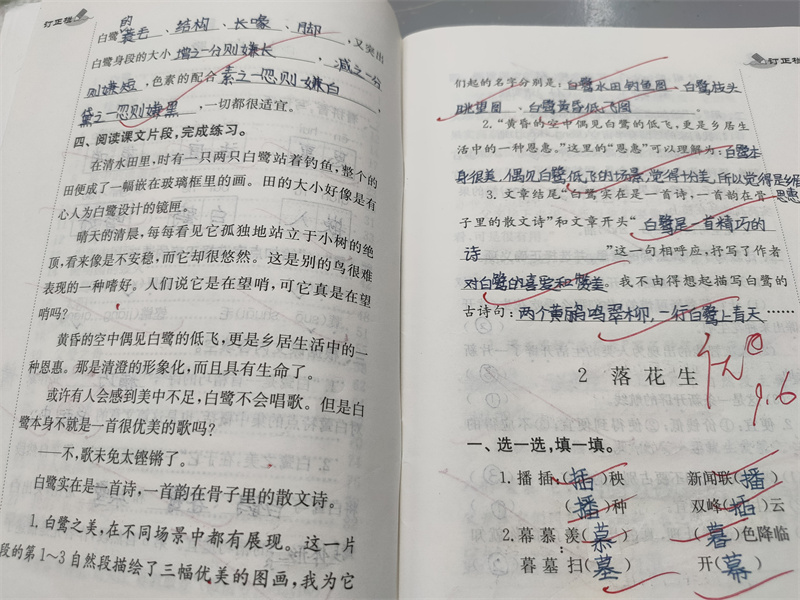 订正栏
的
白鹭蓑毛、结构、长喙、脚,又突出
白鹭身段的大小增之一分则嫌长,减之一分
则嫌短、色素的配合素之一忽则嫌白,
黛之一忽则嫌黑,一切都很适宜。
四、阅读课文片段,完成练习。
在清水田里,时有一只两只白鹭站着钓鱼,整个的
田便成了一幅嵌在玻璃框里的画。田的大小好像是有
心人为白鹭设计的镜匣。
晴天的清晨,每每看见它孤独地站立于小树的绝
顶,看来像是不安稳,而它却很悠然。这是别的鸟很难
表现的一种嗜好。人们说它是在望哨,可它真是在望
哨吗?
黄昏的空中偶见白鹭的低飞,更是乡居生活中的一
种恩惠。那是清澄的形象化,而且具有生命了。
或许有人会感到美中不足,白鹭不会唱歌。但是白
鹭本身不就是一首很优美的歌吗?
——不,歌未免太铿锵了。
白鹭实在是一首诗,一首韵在骨子里的散文诗。
1.白鹭之美,在不同场景中都有展现。这一片
段的第1~3自然段描绘了三幅优美的图画,我为它
订正栏
们起的名字分别是:白鹭水田钓鱼图、白鹭枝头
眺望图、白鹭黄昏低飞图。
2.“黄昏的空中偶见白鹭的低飞,更是乡居生
活中的一种恩惠。”这里的“恩惠”可以理解为:白鹭本
身很美,偶见白鹭低飞的场景,觉得十分美,所以觉得是乡居
恩惠
3.文章结尾“白鹭实在是一首诗,一首韵在骨
子里的散文诗”和文章开头“白鹭是一首精巧的
诗”这一句相呼应,抒写了作者
对白鹭的喜爱和赞美。我不由得想起描写白鹭的
古诗句:两个黄鹂鸣翠柳,一行白鹭上青天……
优
9.6
2 落花生
一、选一选,填一填。
1.播 插:(插)秧 新闻联(播)
(播)种 双峰(插)云
2.幕 慕 羡(慕) (暮)色降临
暮 墓 扫(墓) 开(幕)